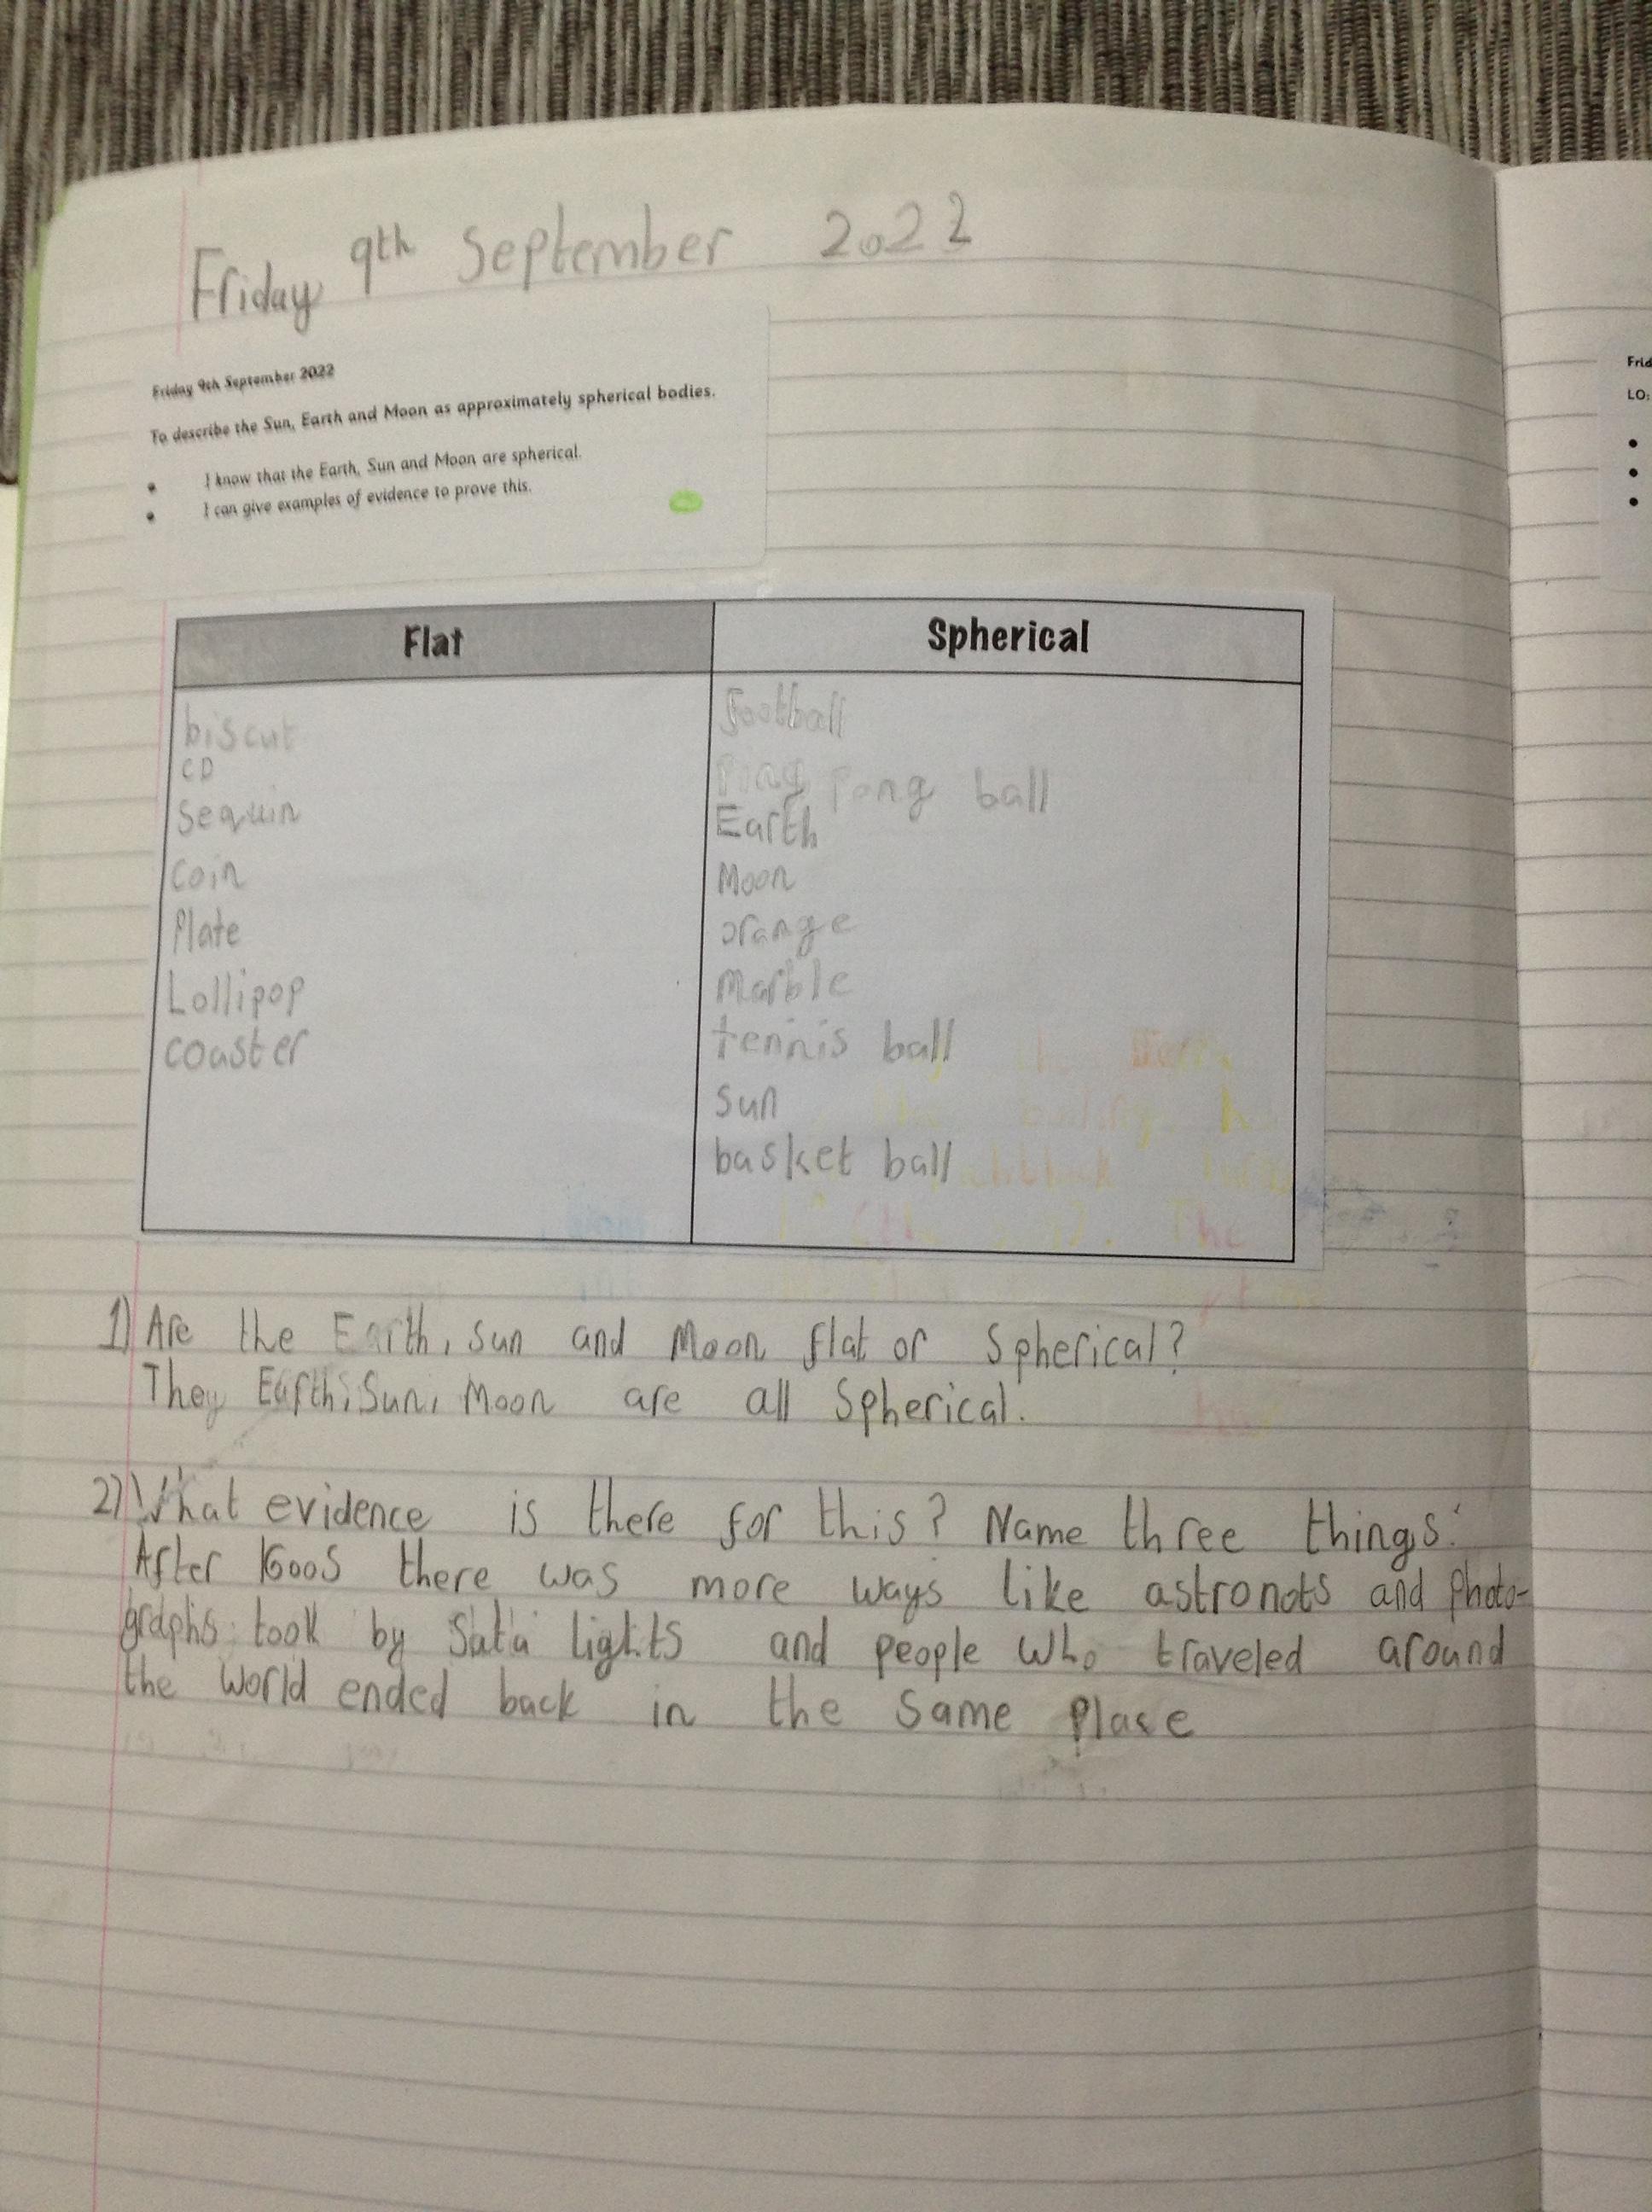 Friday 9th September 2022
Friday 9th September 2022
To describe the Sun, Earth and Moon as approximately spherical bodies.
• I know that the Earth, Sun and Moon are spherical.
• I can give examples of evidence to prove this.
Flat
biscut
CD
Sequin
coin
Plate
Lollipop
coaster
Spherical
football
Ping Pong ball
Earth
Moon
orange
Marble
tennis ball
Sun
basket ball
1) Are the Earth, Sun and Moon flat or Spherical?
They Earth, Sun, Moon are all Spherical.
2) What evidence is there for this? Name three things.
After 1600s there was more ways like astronots and Photo-
graphs took by Sata lights and people who traveled around
the world ended back in the same plase
Frid
LO:
•
•
•